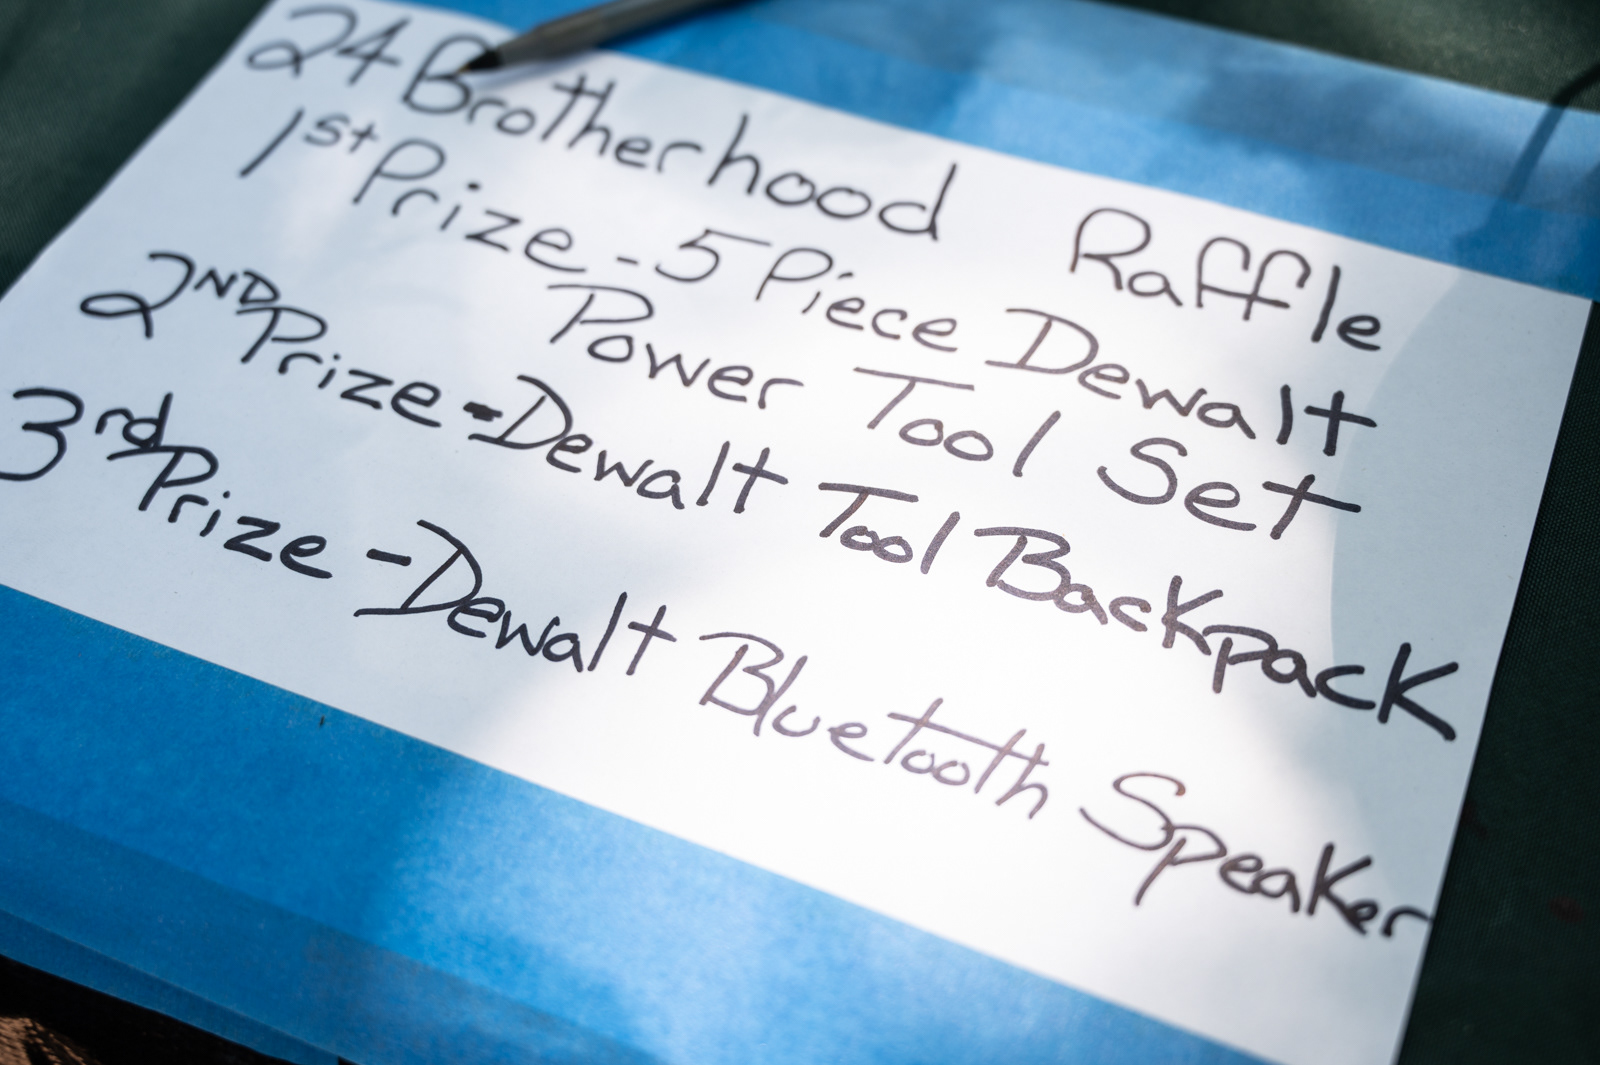 24 Brotherhood Raffle
1st Prize - 5 Piece Dewalt
Power Tool Set
2ND Prize - Dewalt Tool Backpack
3rd Prize - Dewalt Bluetooth Speaker